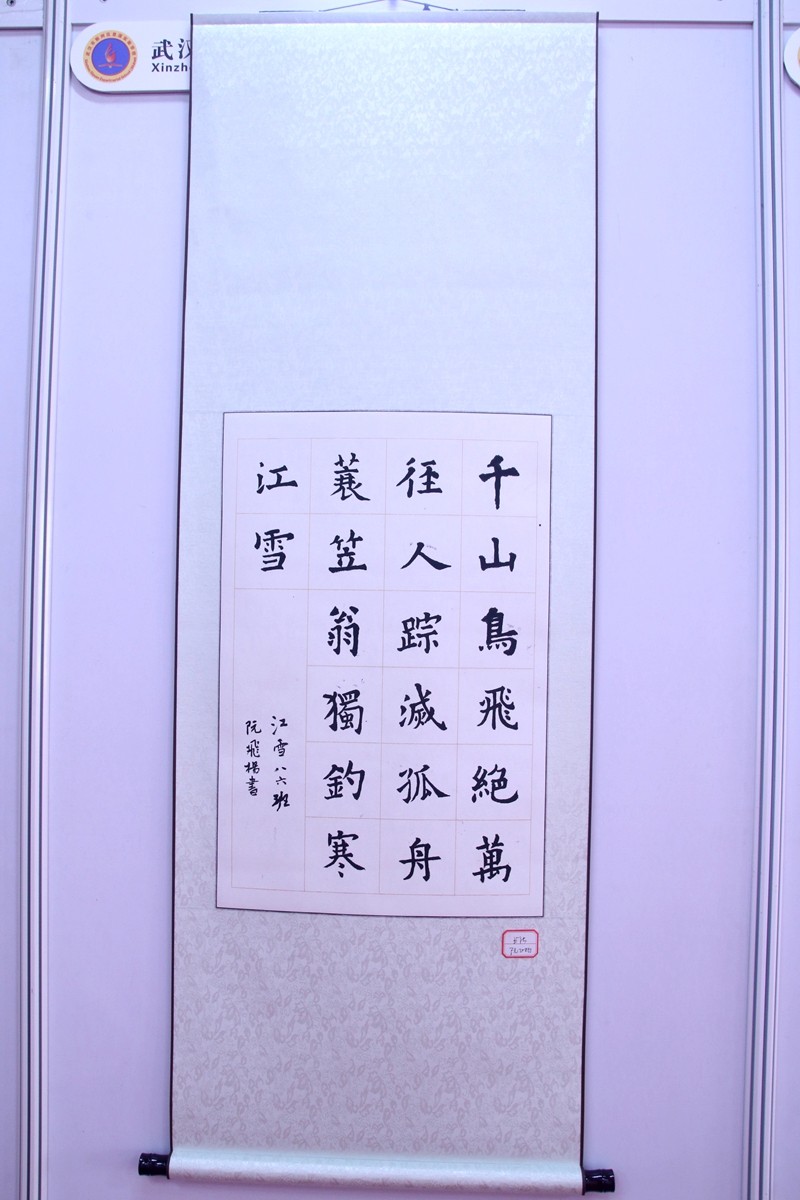 千山鳥飛絕萬
徑人踪滅孤舟
蓑笠翁獨釣寒
江雪
江雪八六班
阮飛楊書
武汉
Xinzh